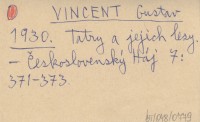 VINCENT Gustav
1930. Tatry a jejich lesy.
- Československý Háj 7:
371-373